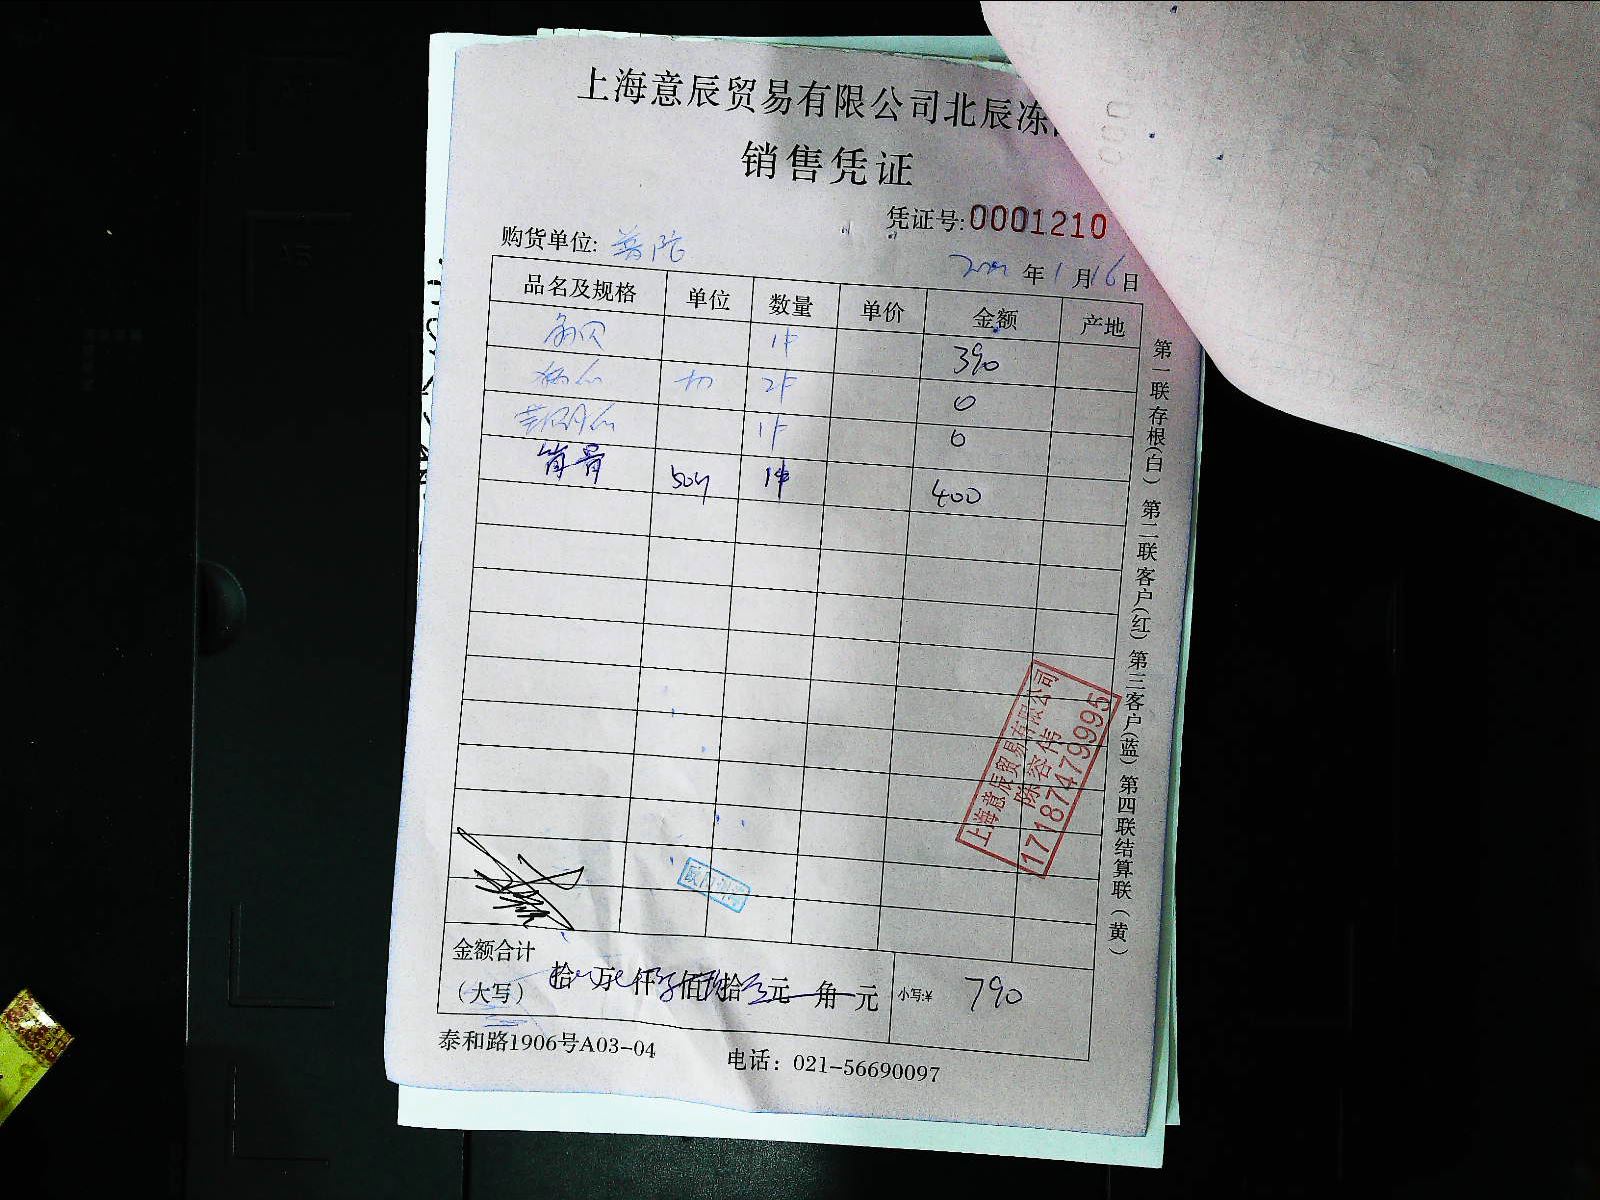 上海意辰贸易有限公司北辰冻
销售凭证
凭证号:0001210
购货单位: 普陀
年1月16日
品名及规格 单位 数量 单价 金额 产地
1件 390
2件 0
1件 0
1件 400
第一联存根(白) 第二联客户(红) 第三客户(蓝) 第四联结算联(黄)
上海意辰贸易有限公司
陈容伟
17187479995
金额合计
(大写) 拾 万 仟 佰 拾 元 角 元 小写:¥ 790
泰和路1906号A03-04 电话: 021-56690097